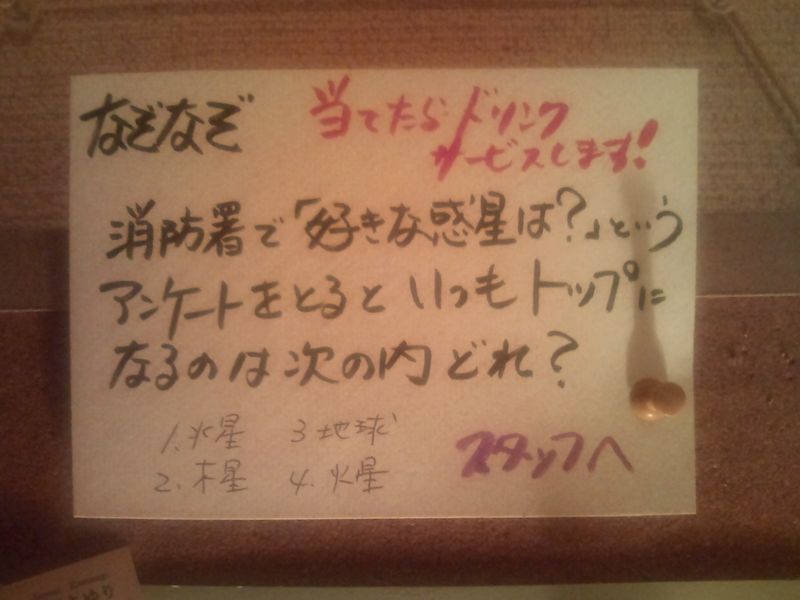 なぞなぞ
当てたらドリンク
サービスします!
消防署で「好きな惑星は?」という
アンケートをとるといつもトップに
なるのは次の内どれ?
1.水星 3地球
2.木星 4.火星
スタッフへ